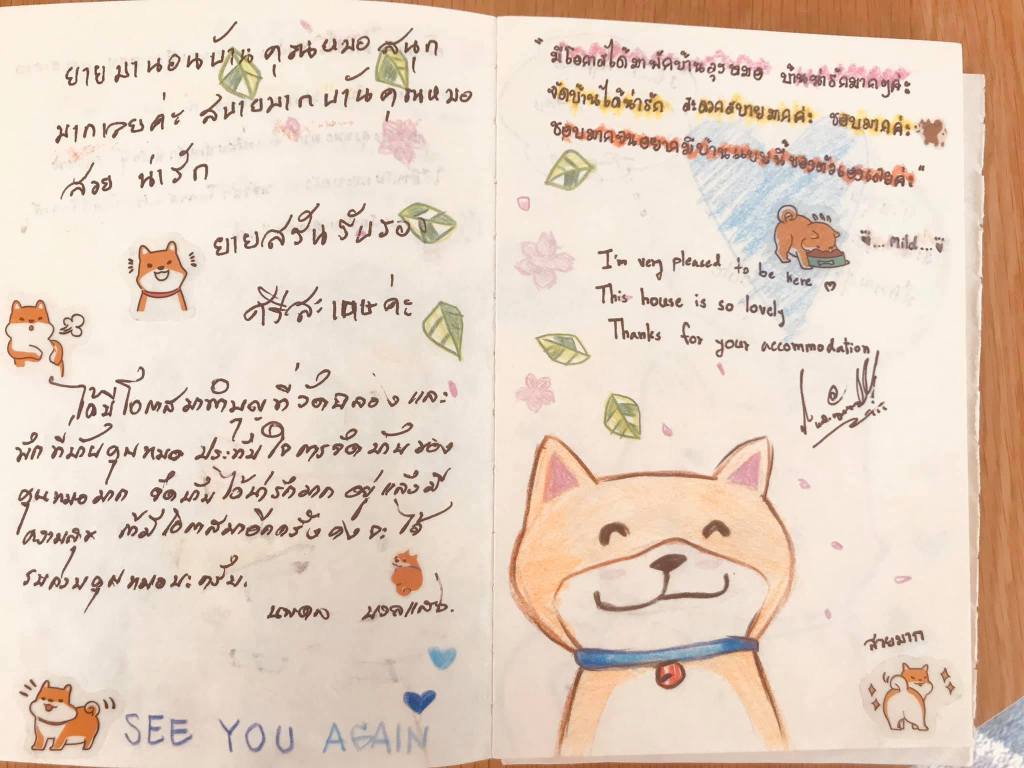 ยายมานอนบ้านคุณหมอ สนุก
มากเลยค่ะ สบายมาก บ้านคุณหมอ
สวย น่ารัก
ยายสรัน รับรอง
ศรีสะเกษค่ะ
ได้มีโอกาสมาทำบุญที่วัดฉลอง และ
พักที่บ้านคุณหมอ ประทับใจการจัดบ้านของ
คุณหมอมาก จัดบ้านได้น่ารักมาก อยู่แล้วมี
ความสุข ถ้ามีโอกาสมาอีกครั้งคงจะได้
รบกวนคุณหมอนะครับ.
นพดล
SEE YOU AGAIN
"มีโอกาสได้มาพักบ้านคุณหมอ บ้านน่ารักมากๆค่ะ
จัดบ้านได้น่ารัก สะดวกสบายมากค่ะ ชอบมากค่ะ
ชอบมากจนอยากมีบ้านแบบนี้ของตัวเองเลยค่ะ"
... Mild ...
I'm very pleased to be here ♡
This house is so lovely
Thanks for your accommodation
สวยมาก